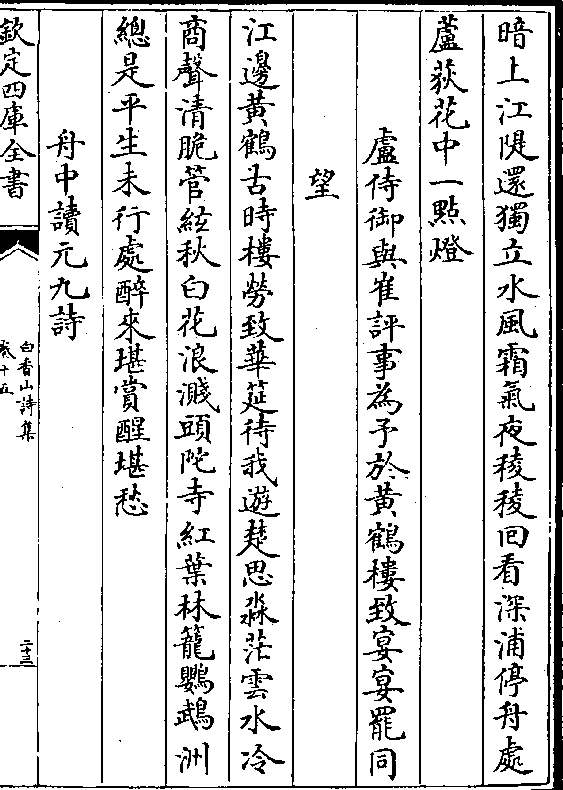 暗上江隄還獨立水風霜氣夜稜稜回看深浦停舟處
蘆荻花中一點燈
盧侍御與崔評事為予於黃鶴樓致宴宴罷同
望
江邊黃鶴古時樓勞致華筵待我遊楚思淼茫雲水冷
商聲清脆管絃秋白花浪濺頭陀寺紅葉林籠鸚鵡洲
總是平生未行處醉來堪賞醒堪愁
舟中讀元九詩
欽定四庫全書
白香山詩集
卷十五
二十三